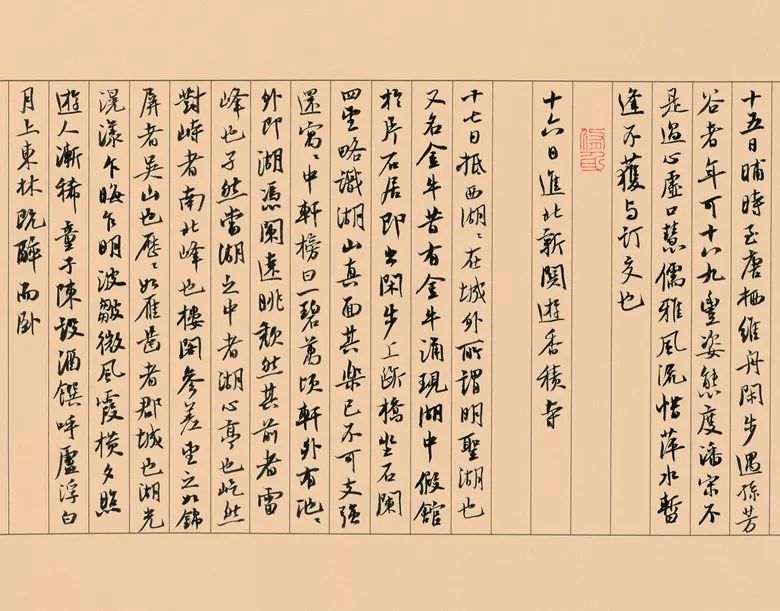 十五日晡時至唐栖維舟閑步遇孫芳
谷者年可十八九豐姿態度潘宋不
是過心虛口慧儒雅風流惜萍水暫
逢不獲与訂交也
十六日進北新關遊香積寺
十七日抵西湖〻在城外所謂明聖湖也
又名金牛昔有金牛涌現湖中假館
於片石居即出閑步上斷橋坐石闌
四望略識湖山真面其樂已不可支強
還寓〻中軒榜曰一碧萬頃軒外有池〻
外即湖憑闌遠眺頹然其前者雷
峰也孑然當湖之中者湖心亭也屹然
對峙者南北峰也樓閣參差望之如錦
屏者吴山也歷〻如雁齒者郡城也湖光
滉漾乍晦乍明波皺微風霞橫夕照
遊人漸稀童子陳設酒饌呼盧浮白
月上東林既醉而卧